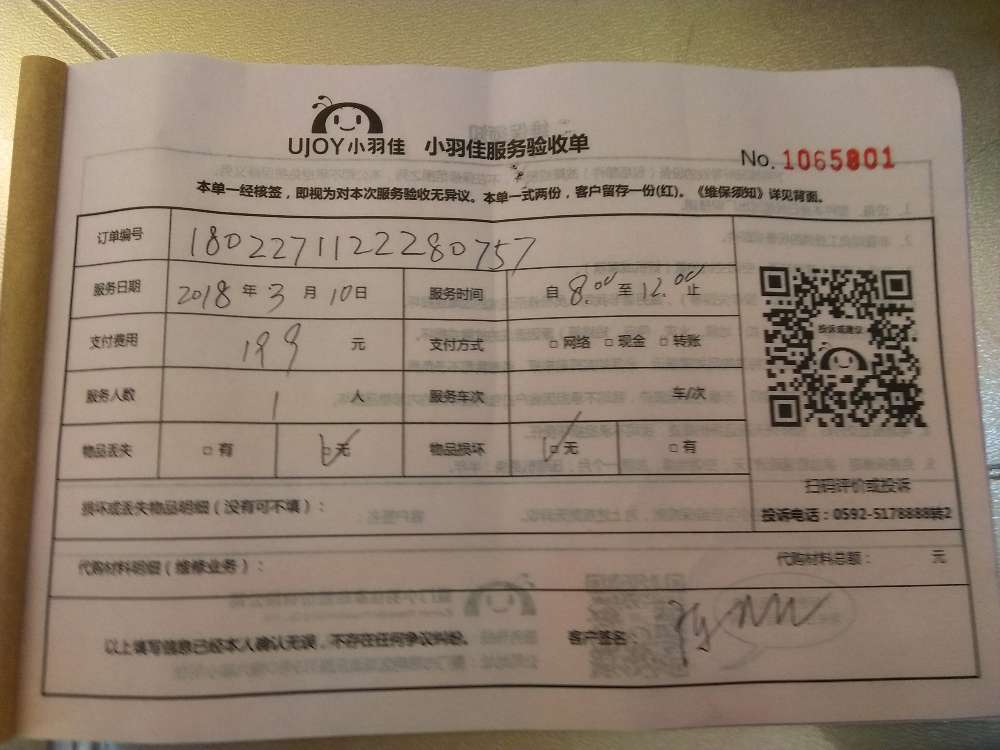 UJOY小羽佳 小羽佳服务验收单
No. 1065801
本单一经接签，即视为对本次服务验收无异议。本单一式两份，客户留存一份(红)。《维保须知》详见背面。
订单编号 18022711222280757
服务日期 2018年3月10日 服务时间 自8:00至12:00止
支付费用 199元 支付方式 □网络 □现金 □转账
投诉或建议
服务人数 1人 服务车次 车/次
物品丢失 □有 □无 物品损坏 □无 □有
扫码评价或投诉
损坏或丢失物品明细（没有可不填）：
投诉电话：0592-5178888转2
代购材料明细（维修业务）： 代购材料总额： 元
以上填写信息已经本人确认无误，不存在任何争议纠纷。 客户签名：